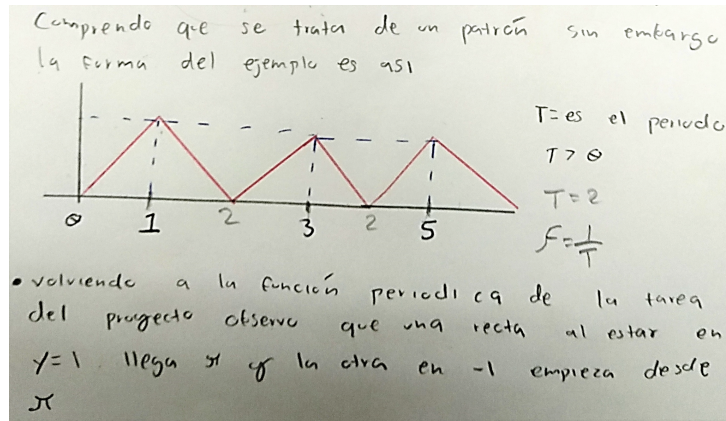 Comprendo que se trata de un patrón sin embargo
la forma del ejemplo es así
T = es el periodo
T > 0
T = 2
f = 1/T
0 1 2 3 2 5
• volviendo a la función periodica de la tarea
del proyecto observo que una recta al estar en
y = 1 llega π y la otra en -1 empieza desde
π